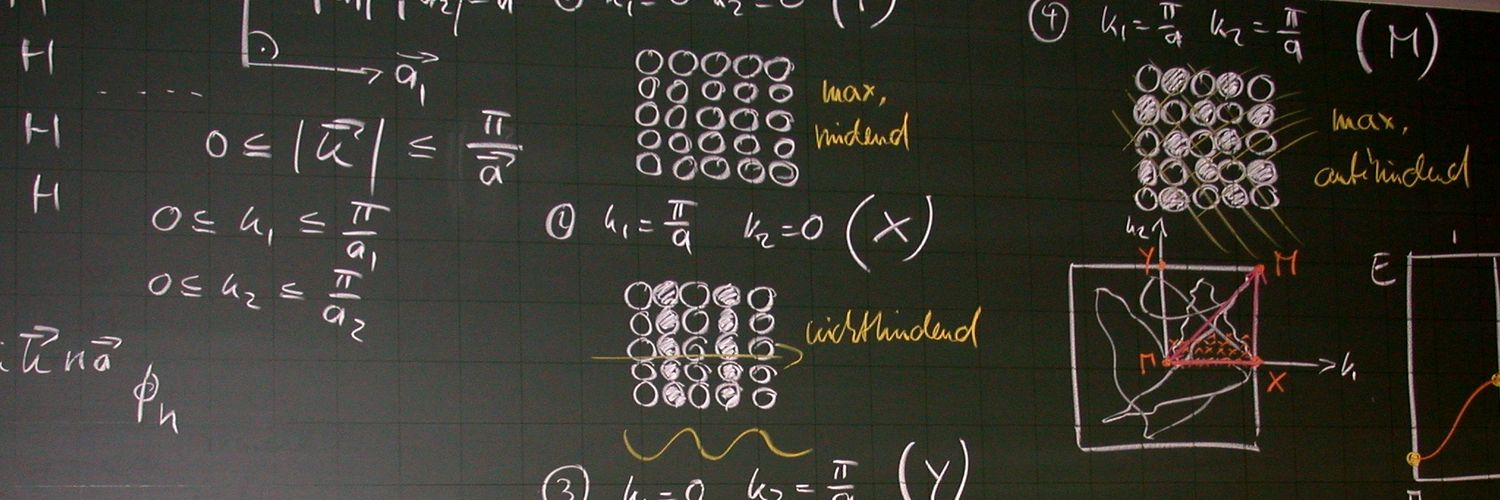 H
H
H
a⃗₁
0 ≤ |k⃗| ≤ π/a⃗
0 ≤ k₁ ≤ π/a₁
0 ≤ k₂ ≤ π/a₂
k⃗ n a⃗
ϕₙ
max.
bindend
② k₁ = π/a k₂ = 0 (X)
nichtbindend
③ k₁ = 0 k₂ = π/a (Y)
④ k₁ = π/a k₂ = π/a (M)
max.
antibindend
k₂
Y
M
Γ
X
k₁
E